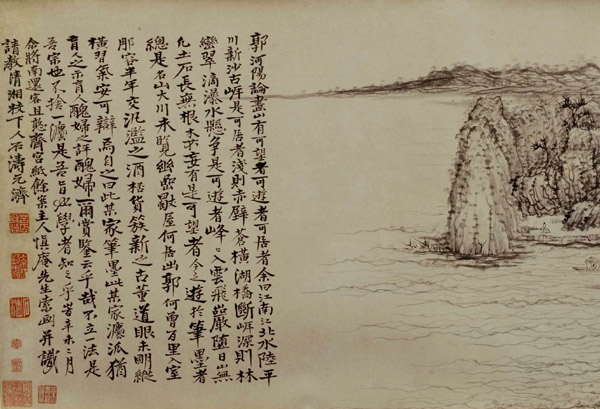 郭河陽論畫山有可望者可遊者可居者余曰江南江北水陸平
川新沙古岸是可居者淺則赤壁蒼橫湖橋斷岸深則林
巒翠滴瀑水懸爭是可遊者峰峰入雲飛巖墮日山無
凡土石長無根木不妄有是可望者今之遊於筆墨者
總是名山大川未覽幽巖獨屋何居出郭何曾百里入室
那容半年交泛濫之酒杯貨簇新之古董道眼未明縱
橫習氣安可辯焉自之曰此某家筆墨此某家灋派猶
盲人之示盲人醜婦之評醜婦爾賞鑒云乎哉不立一法是
吾宗也不捨一灋是吾旨也學者知之乎時辛未二月
余將南還客且憨齋宮紙餘案主人慎庵先生索畫并識
請教清湘枝下人石濤元濟